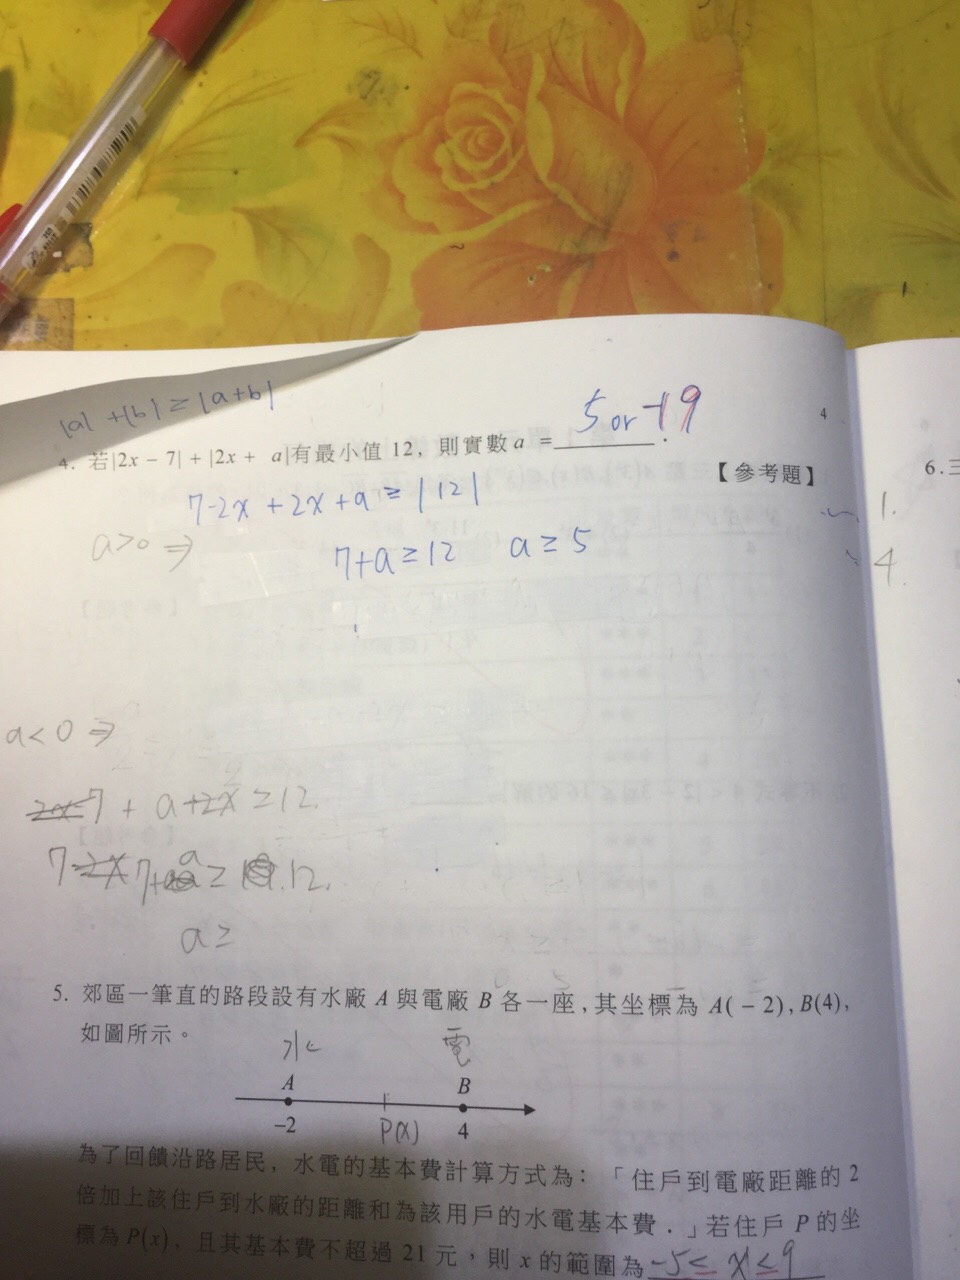 |a| + |b| ≥ |a+b|
5 or -19
4
4. 若|2x − 7| + |2x + a|有最小值 12, 則實數 a = ______ .
【參考題】
7-2x + 2x + a ≥ |12|
a>0 ⇒
7+a ≥ 12 a ≥ 5
a<0 ⇒
7 + a+2x ≥ 12.
7 7+a ≥ 12.
a ≥
5. 郊區一筆直的路段設有水廠 A 與電廠 B 各一座,其坐標為 A( − 2), B(4),
如圖所示。
水 電
A B
−2 P(x) 4
為了回饋沿路居民, 水電的基本費計算方式為:「住戶到電廠距離的 2
倍加上該住戶到水廠的距離和為該用戶的水電基本費.」若住戶 P 的坐
標為 P(x), 且其基本費不超過 21 元,則 x 的範圍為 -5 ≤ x ≤ 9
6. 三
1.
4.